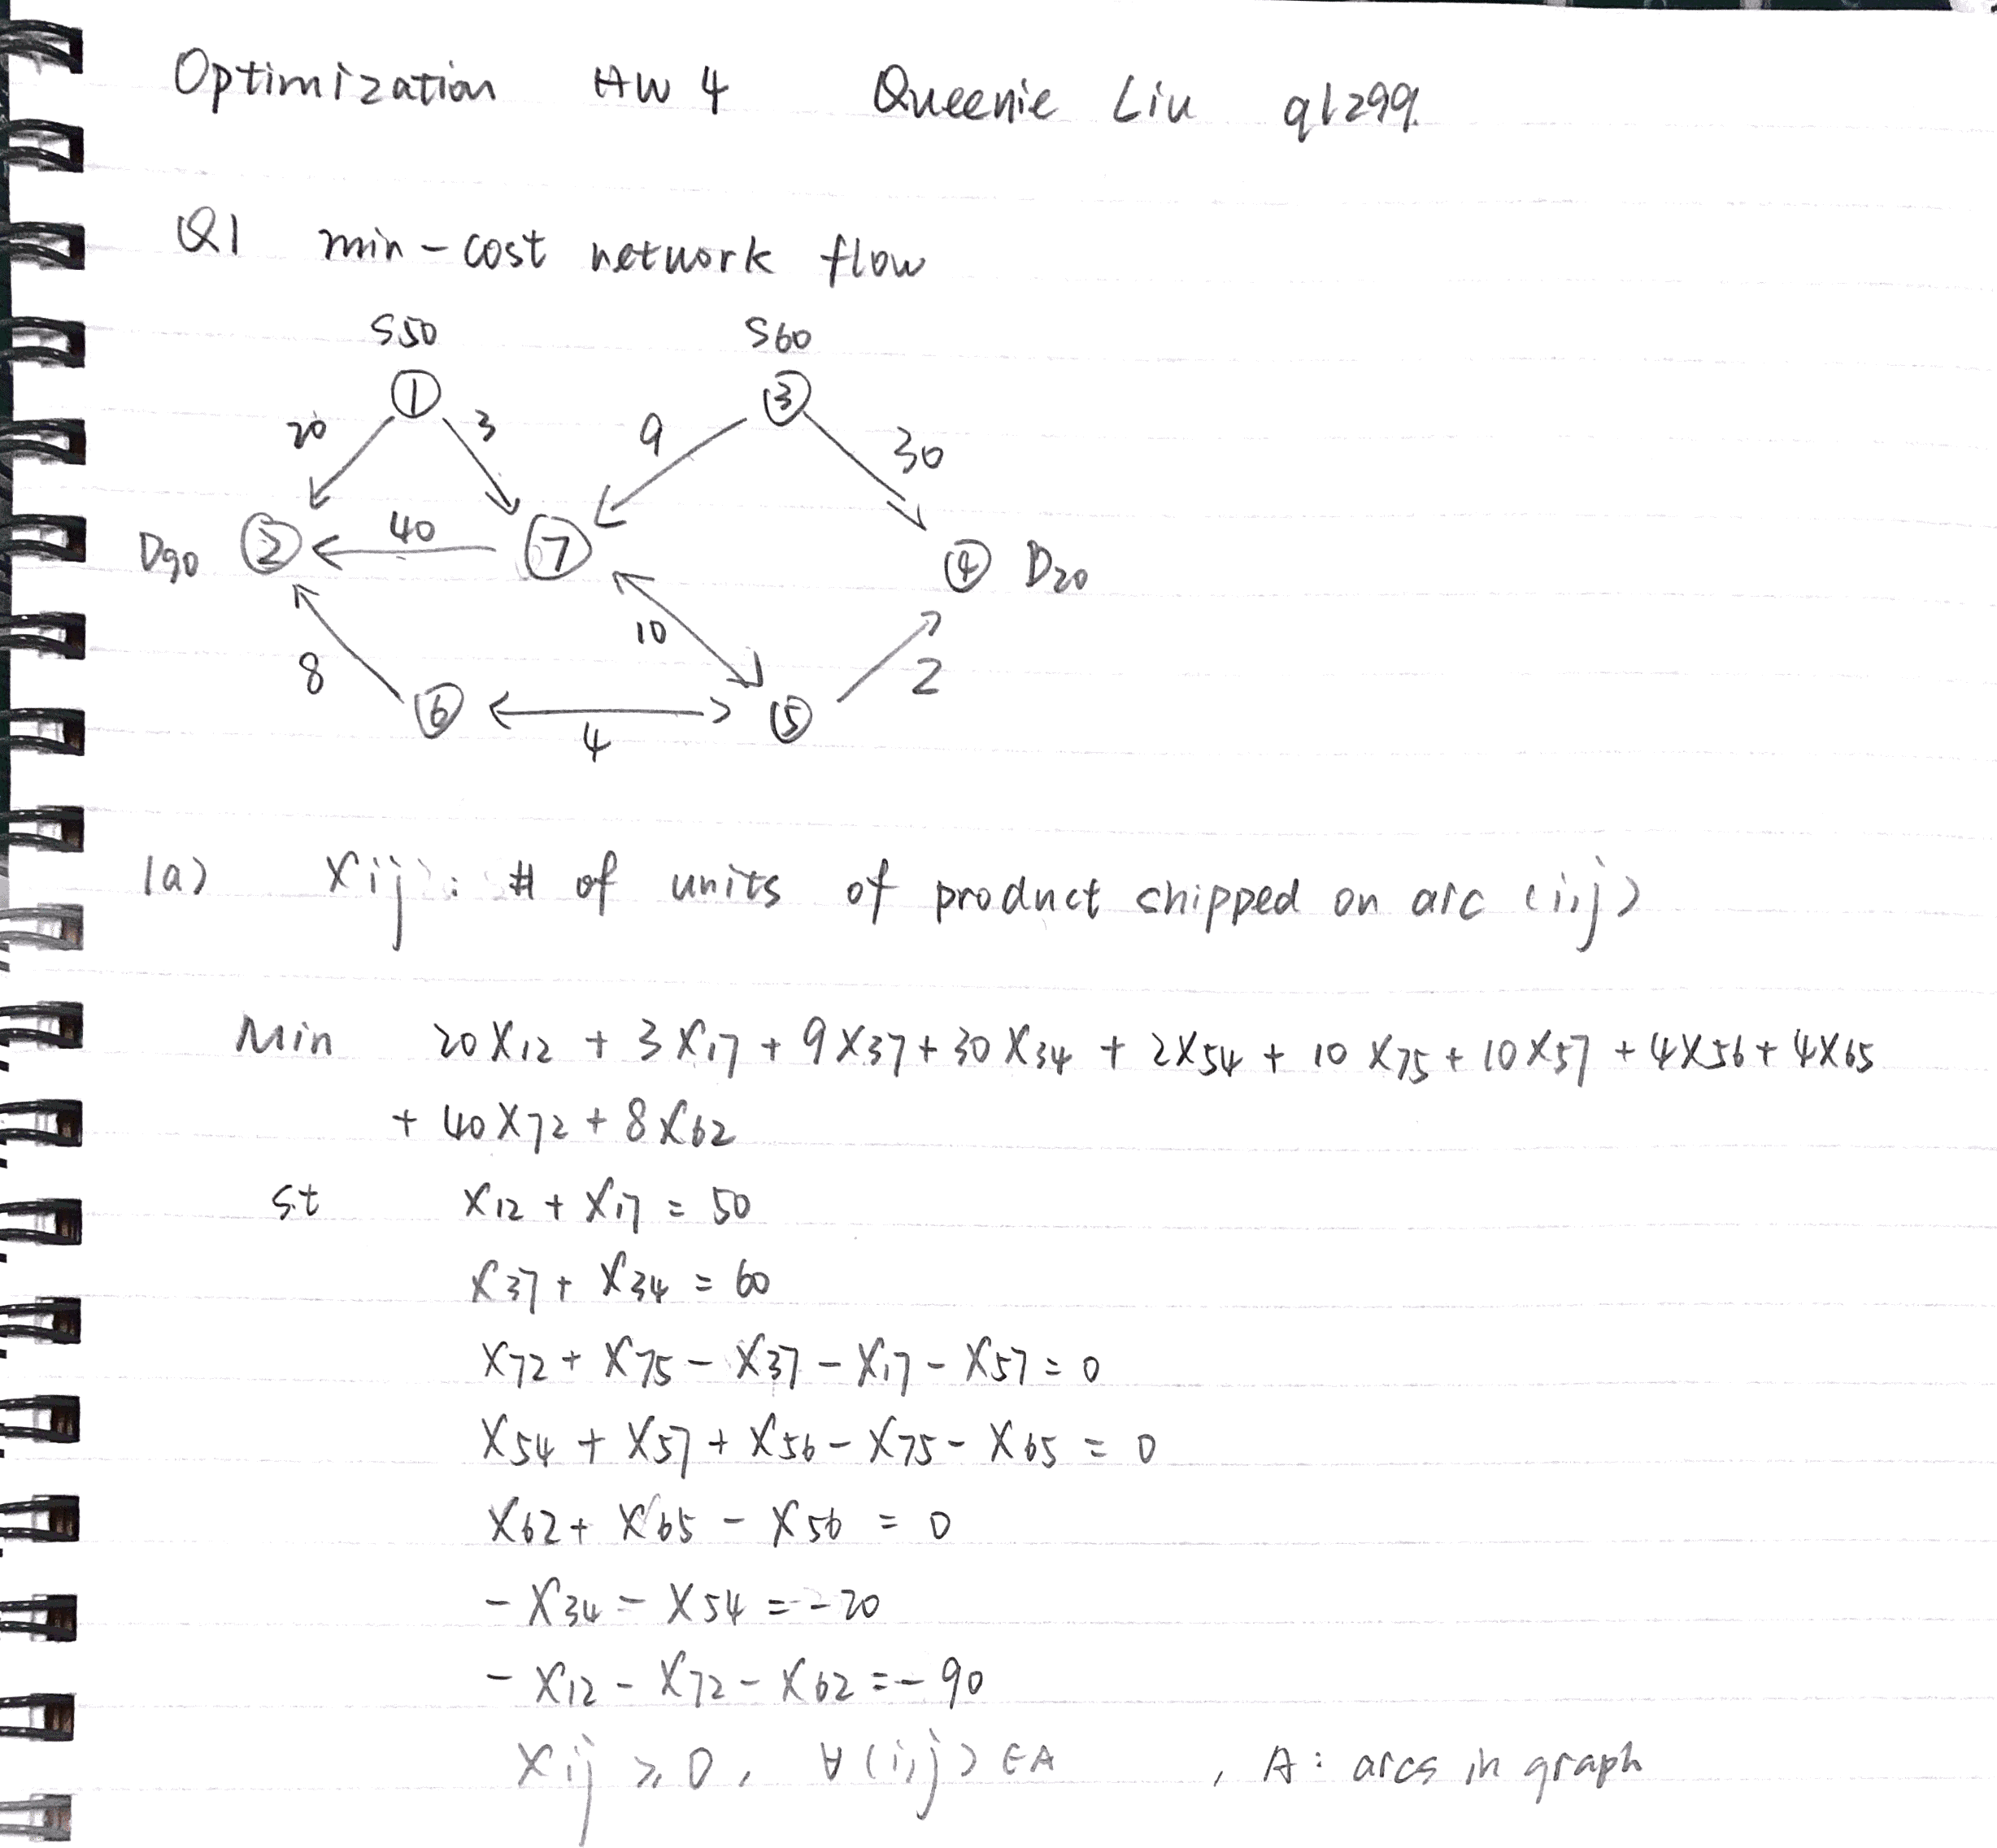 Optimization HW 4 Queenie Liu ql299
Q1 min-cost network flow
S50 S60
① ③
20 3 9 30
D90 ② 40 ⑦ ④ D20
10
8 2
⑥ ⑤
4
1a) Xij : # of units of product shipped on arc (i,j)
Min 20X12 + 3X17 + 9X37 + 30X34 + 2X54 + 10X75 + 10X57 + 4X56 + 4X65
+ 40X72 + 8X62
s.t X12 + X17 = 50
X37 + X34 = 60
X72 + X75 - X37 - X17 - X57 = 0
X54 + X57 + X56 - X75 - X65 = 0
X62 + X65 - X56 = 0
- X34 - X54 = -20
- X12 - X72 - X62 = -90
Xij ≥ 0, ∀(i,j) ∈ A , A : arcs in graph